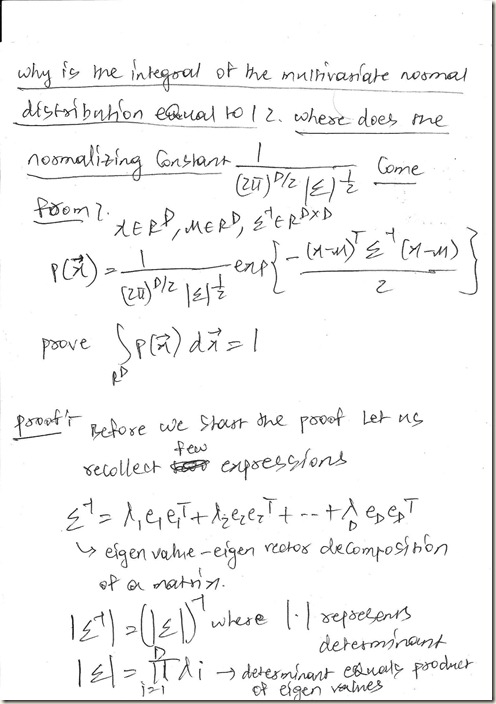 why is the integral of the multivariate normal
distribution equal to 1 ?. where does the
normalizing constant 1/((2π)^{D/2} |Σ|^{1/2}) come
from?.
x ∈ R^D, μ ∈ R^D, Σ⁻¹ ∈ R^{D×D}
P(x⃗) = 1/((2π)^{D/2} |Σ|^{1/2}) exp{ -(x-μ)^T Σ⁻¹ (x-μ) / 2 }
prove ∫_{R^D} P(x⃗) dx⃗ = 1
proof:- Before we start the proof Let us
recollect few expressions
Σ⁻¹ = λ₁e₁e₁ᵀ + λ₂e₂e₂ᵀ + -- + λ_D e_D e_Dᵀ
↳ eigen value - eigen vector decomposition
of a matrix.
|Σ⁻¹| = (|Σ|)⁻¹ where |·| represents
determinant
|Σ| = ∏_{i=1}^{D} λi → determinant equals product
of eigen values